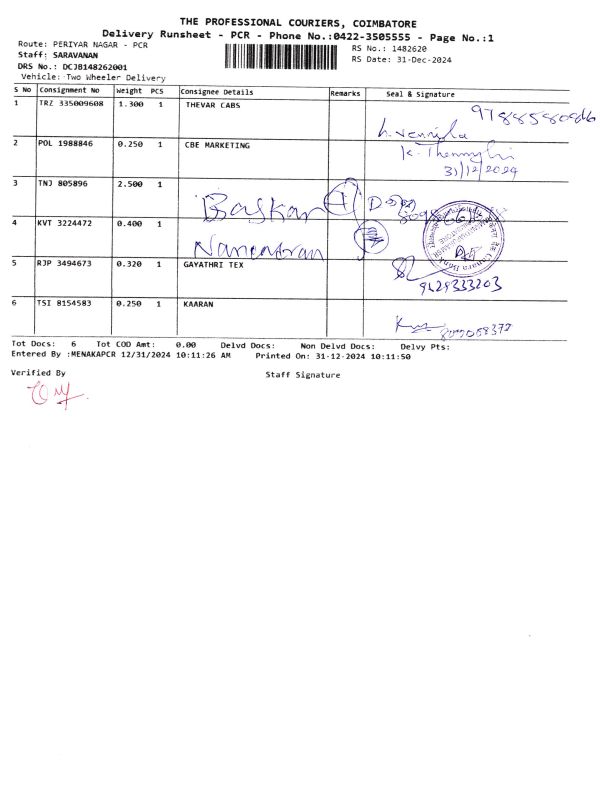 THE PROFESSIONAL COURIERS, COIMBATORE
Delivery Runsheet - PCR - Phone No.:0422-3505555 - Page No.:1
Route: PERIYAR NAGAR - PCR
RS No.: 1482620
Staff: SARAVANAN
RS Date: 31-Dec-2024
DRS No.: DCJB148262001
Vehicle: Two Wheeler Delivery
S No Consignment No Weight PCS Consignee Details Remarks Seal & Signature
1 TRZ 335009608 1.300 1 THEVAR CABS
2 POL 1988846 0.250 1 CBE MARKETING
31/12/2024
3 TNJ 805896 2.500 1 Baskar
4 KVT 3224472 0.400 1 Narendran
5 RJP 3494673 0.320 1 GAYATHRI TEX
9629333203
6 TSI 8154583 0.250 1 KAARAN
Tot Docs: 6 Tot COD Amt: 0.00 Delvd Docs: Non Delvd Docs: Delvy Pts:
Entered By :MENAKAPCR 12/31/2024 10:11:26 AM Printed On: 31-12-2024 10:11:50
Verified By Staff Signature